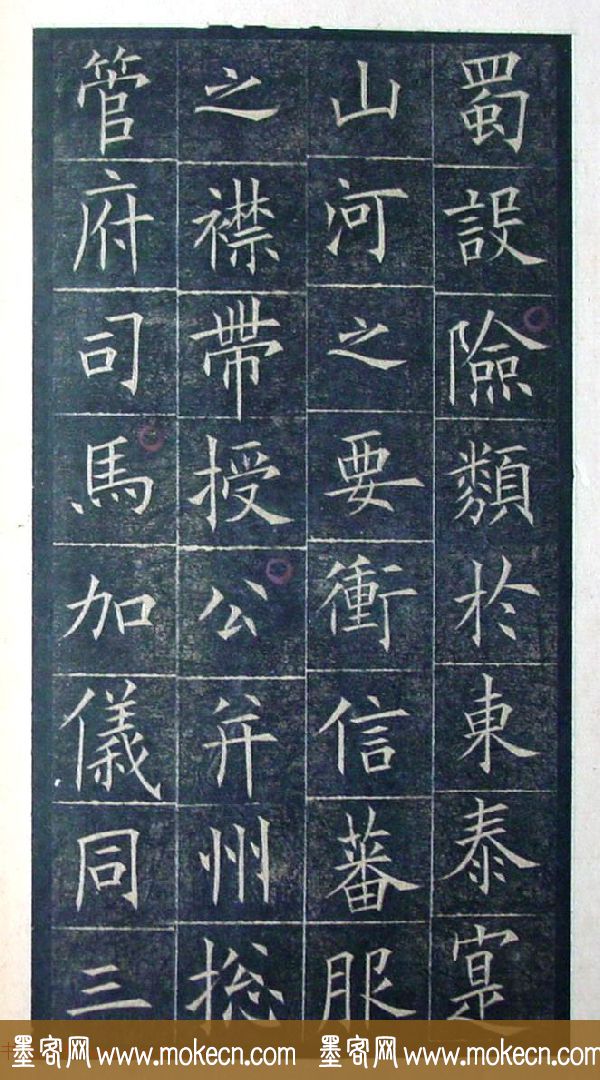 蜀設險類於東泰寔
山河之要衝信蕃服
之襟帶授公并州揔
管府司馬加儀同三
墨客网 www.mokecn.com 墨客网 www.mokecn.com